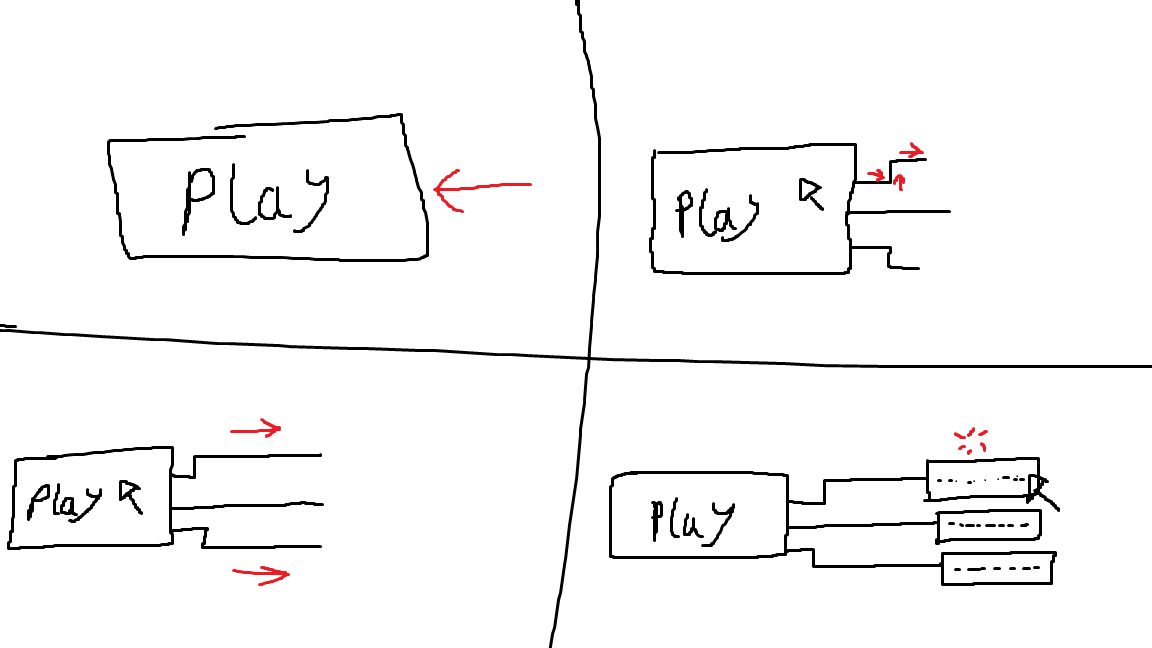 Play
Play
Play
Play